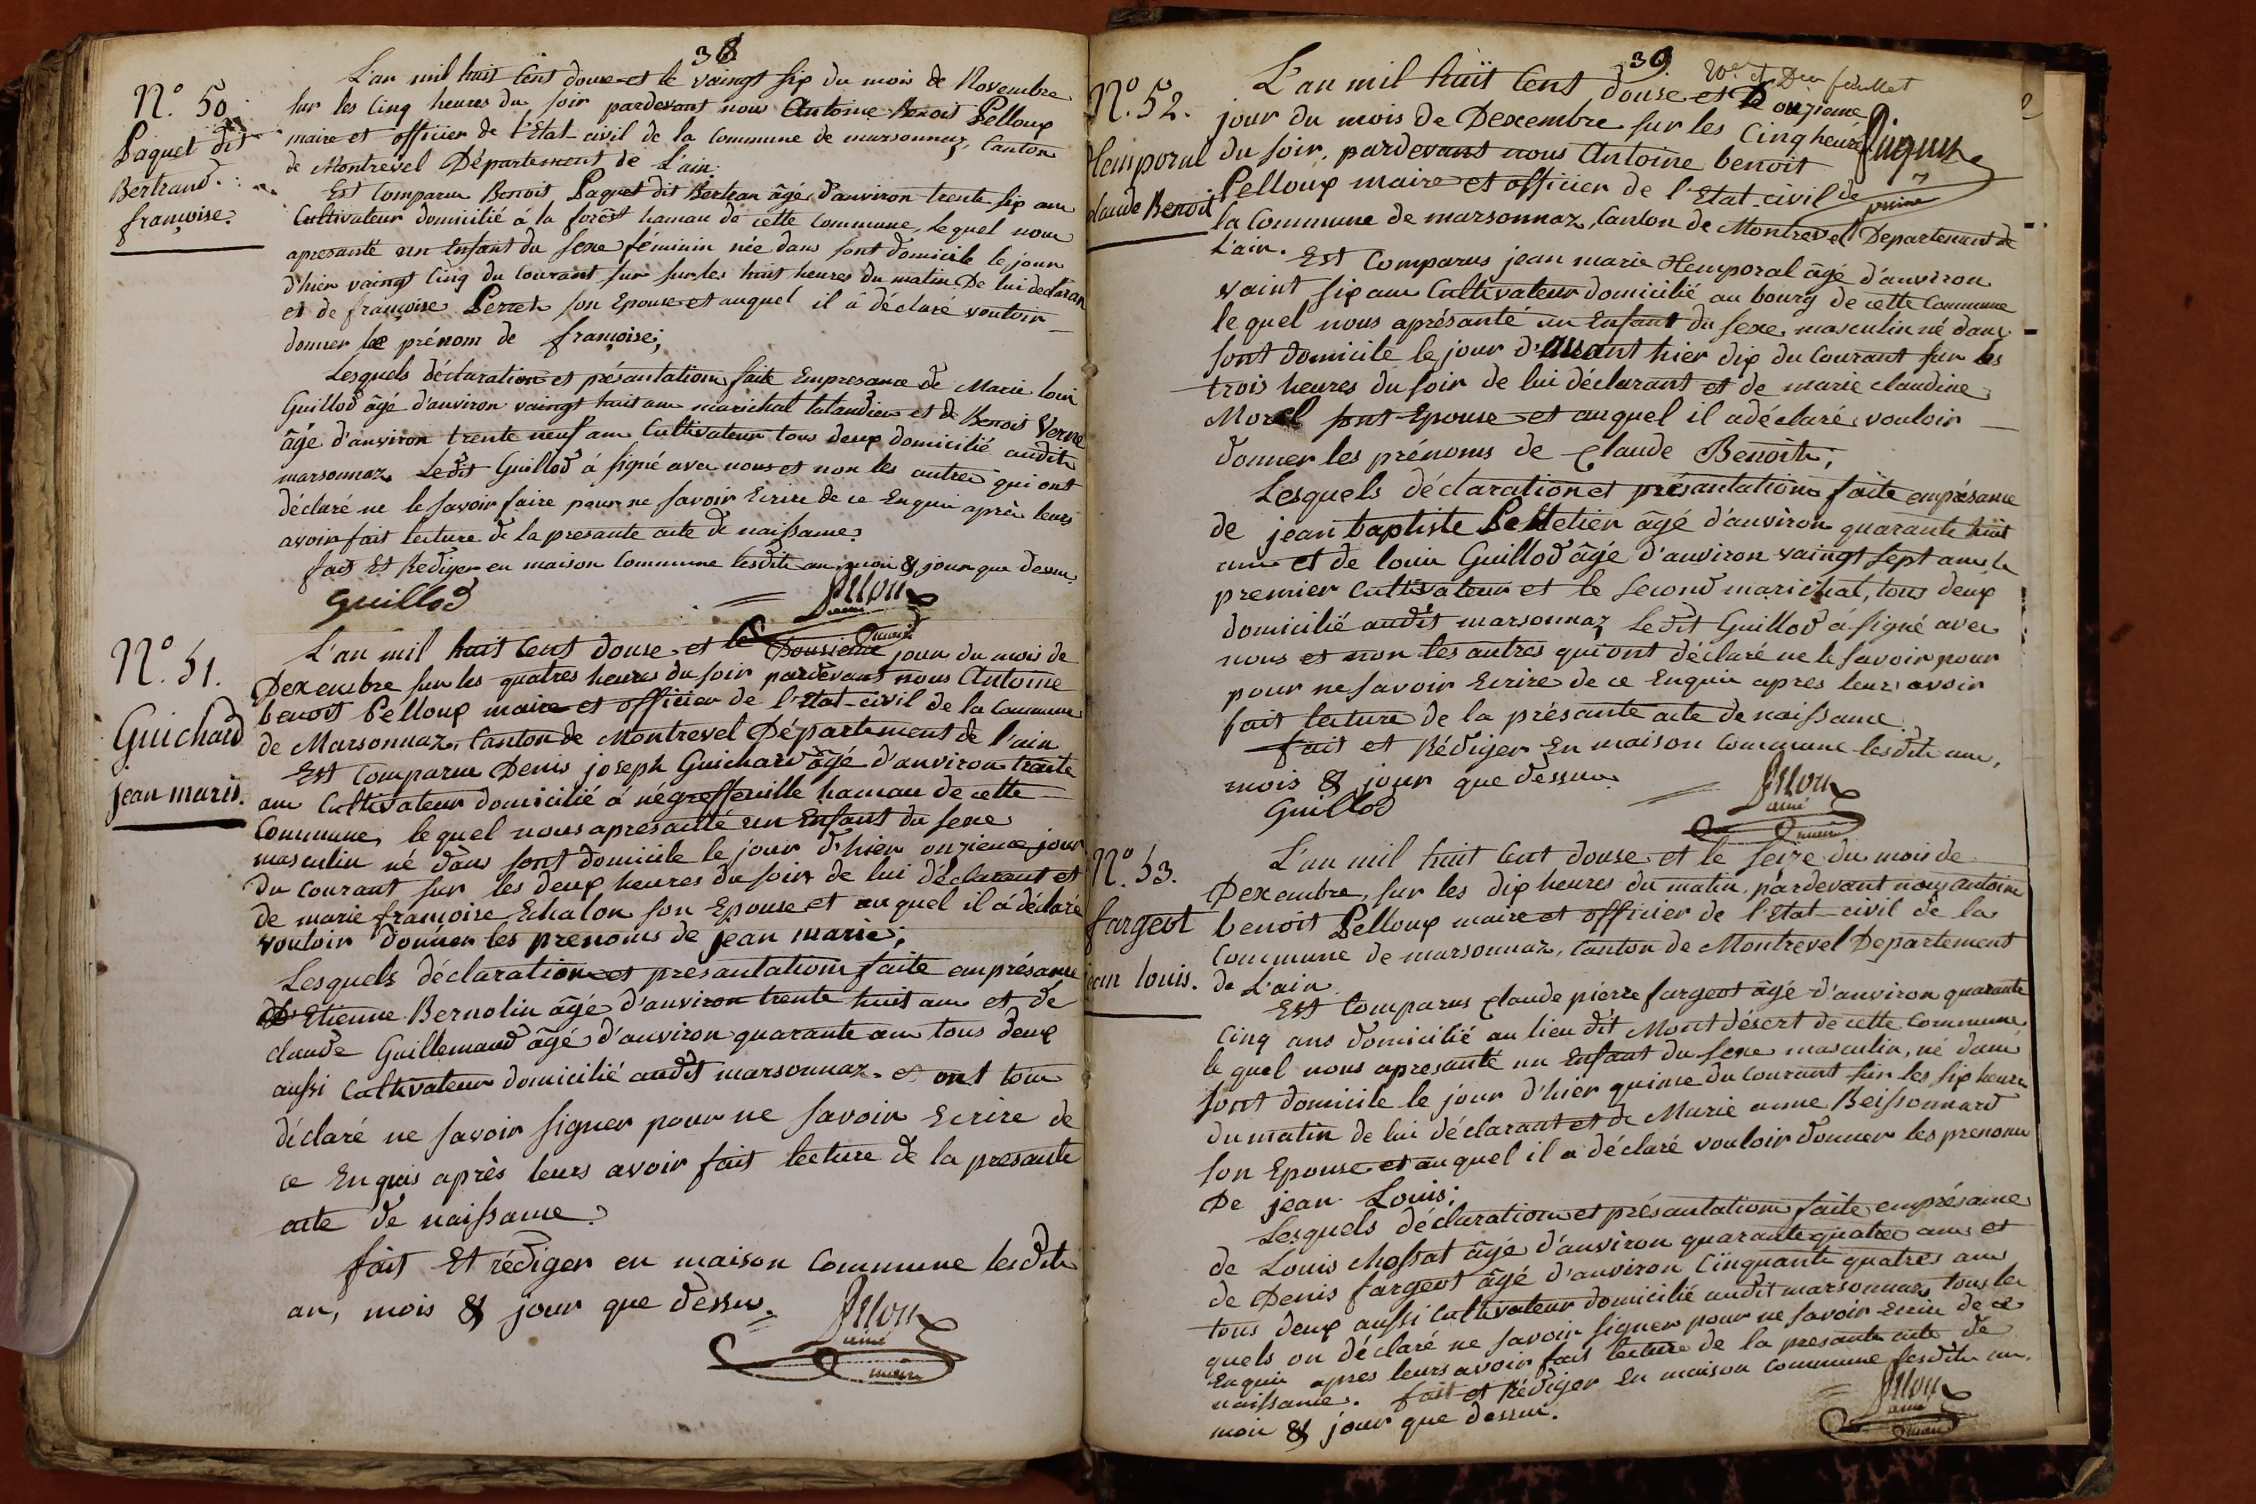 38
N.º 50.
Paquet dit
Bertrand.
françoise.
L'an mil huit Cent douse et le vaingt six du mois de Novembre
sur les Cinq heures du soir pardevant nous Antoine Benoit Pelloux
maire et officier de l'Etat civil de la Commune de marsonnaz, Canton
de Montrevel Département de L'ain.
Est Comparu Benoit Paquet dit Bertran âgé d'anviron trente six ans
Cultivateur domicilié á la forêst hamau de cette Commune, lequel nous
apresanté un Enfant du sexe féminin née dans sont domicile le jour
d'hier vaingt Cinq du Courant sur sur les huit heures du matin De lui déclaran
et de françoise Perret son Epouse et auquel il â déclaré vouloir
donner le prénom de françoise;
Lesquels déclaration et présantation faite Empresance de Marie louis
Guillod âgé d'anviron vaingt huit ans marichal talandier et de Benoit Verne
âgé d'anviron trente neuf ans Cultivateur tous deux domicilié audit
marsonnaz Ledit Guillod á signé avec nous et non les autres qui ont
déclaré ne le savoir faire pour ne savoir Ecrire de ce Enquis après leurs
avoir fait lecture de la presante acte de naissance.
fait Et Rediger en maison Commune lesdits an, mois & jour que dessus
Guillod
aîné
maire
N.º 51.
Guichard
jean marie.
L'an mil huit Cent douse et le Dousieme jour du mois de
Dexembre sur les quatres heures du soir pardevant nous Antoine
benoit Pelloux maire et officier de l'Etat-civil de la Commune
de Marsonnaz, Canton de Montrevel Département de l'ain
Est Comparu Denis joseph Guichard âgé d'anviron trante
ans Cultivateur domicilié á négreffeuille hamau de cette
Commune, lequel nous apresanté un Enfant du sexe
masculin né dans sont domicile le jour d'hier onzieme jour
du Courant sur les deux heures du soir de lui déclarant et
de marie françoise Echalon son Epouse et auquel il á déclaré
vouloir donner les prenoms de jean marie;
Lesquels déclaration et presantation faite anprésance
D'Etienne Bernolin âgé d'anviron trente huit ans et de
claude Guillemaud âgé d'anviron quarante ans tous deux
aussi Cultivateur domicilié audit marsonnaz. et ont tous
déclaré ne savoir signer pour ne savoir Ecrire de
ce Enquis après leurs avoir fait lecture de la presante
acte de naissance.
fait Et rédiger en maison Commune lesdits
an, mois & jour que dessus.
aîné
maire
39
20e et Der feuillet
N.º 52.
Hemporal
claude Benoit
L'an mil huit Cent douse et D ouzieme
jour du mois de Dexembre sur les Cinq heures
du soir, pardevant nous Antoine benoit
Pelloux maire et officier de l'Etat-civil de
la Commune de marsonnaz, Canton de Montrevel Departement de
L'ain.
Est Comparus jean marie Hemporal âgé d'anviron
vaint six ans Cultivateur domicilié au bourg de cette Commune
le quel nous aprésanté un Enfant du sexe masculin né dans
sont domicile le jour d'avant hier dix du Courant sur les
trois heures du soir de lui déclarant et de marie claudine
Morel sont Epouse et auquel il adéclaré vouloir
donner les prénoms de Claude Benoit;
Lesquels déclaration et présantation faite anprésance
de jean baptiste Pelletier âgé d'anviron quarante huit
ans et de louis Guillod âgé d'anviron vaingt sept ans le
premier Cultivateur et le second marichat, tous deux
domicilié audit marsonnaz Ledit Guillod á signé avec
nous et non les autres qui ont déclaré ne le savoir pour
pour ne savoir Ecrire de ce Enquis apres leur avoir
fait lecture de la présante acte de naissance
fait et Rédiger En maison Commune lesdits ans,
mois & jour que dessus.
Guillod
aîné
maire
N.º 53.
fargeot
jean louis.
L'an mil huit Cent douse et le seize du mois de
Dexembre, sur les dix heures du matin pardevant nous antoine
benoit Pelloux maire et officier de l'Etat-civil de la
Commune de marsonnaz, Canton de Montrevel Departement
de L'ain
Est Comparus Claude pierre fargeot âgé d'anviron quarante
Cinq ans domicilié au lieu dit Mont désert de cette Commune
le quel nous apresanté un Enfant du sexe masculin, né dans
sont domicile le jour d'hier quinze du Courant sur les six heures
du matin de lui déclarant et de Marie anne Beissonnard
son Epouse et auquel il a déclaré vouloir donner les prenoms
De jean Louis;
Lesquels déclaration et présantation faite anprésance
de Louis Chossat âgé d'anviron quarante quatre ans et
de Denis fargeot âgé d'anviron Cinquante quatres ans
tous deux aussi Cultivateur domicilié audit marsonnaz tous les
quels on déclaré ne savoir signer pour ne savoir Ecrire de ce
Enquis apres leurs avoir fait lecture de la presante acte de
naissance. fait et Rédiger En maison Commune lesdits an,
mois & jour que dessus.
aîné
maire